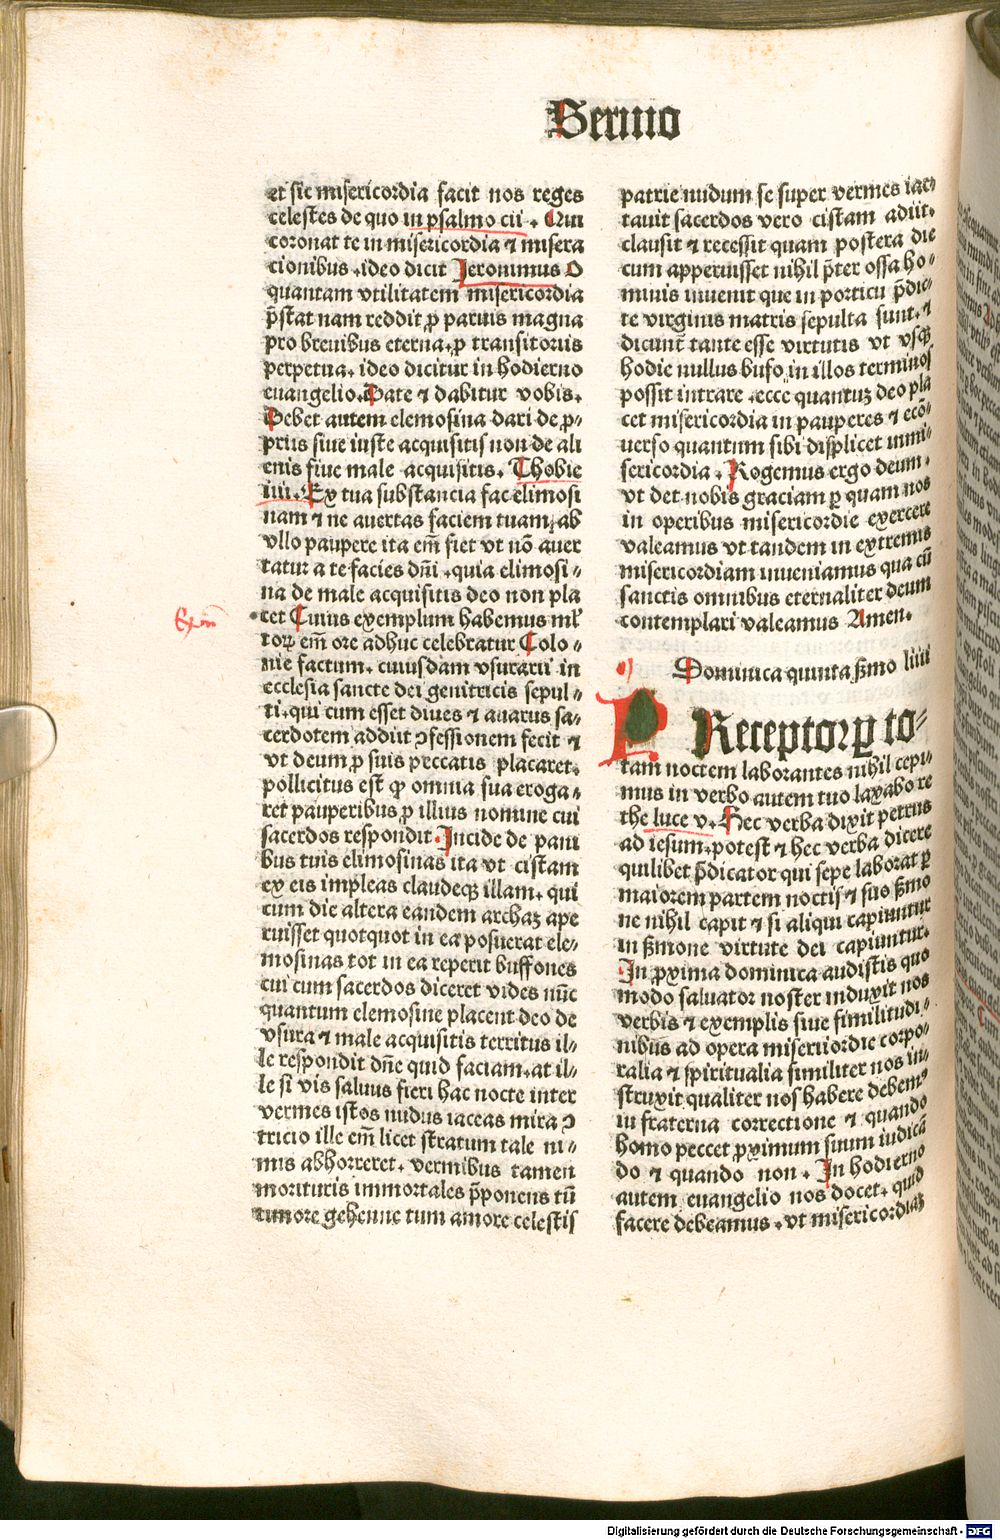 Sermo
et sic misericordia facit nos reges
celestes de quo in psalmo cii. Qui
coronat te in misericordia ⁊ misera
cionibus .ideo dicit Jeronimus O
quantam vtilitatem misericordia
p̄stat nam reddit ꝓ paruis magna
pro breuibus eterna.ꝓ transitoriis
perpetua. ideo dicitur in hodierno
euangelio.Date ⁊ dabitur vobis.
Debet autem elemosina dari de ꝓ⸗
priis siue iuste acquisitis non de ali
enis siue male acquisitis. Thobie
iiii. Ex tua substancia fac elimosi
nam ⁊ ne auertas faciem tuam ab
vllo paupere ita em̄ fiet vt nō auer
tatur a te facies dn̄i .quia elimosi⸗
na de male acquisitis deo non pla
cet Cuius exemplum habemus ml̓
Exm̄
toꝝ em̄ ore adhuc celebratur Colo⸗
nie factum. cuiusdam vsurarii in
ecclesia sancte dei genitricis sepul⸗
ti.qui cum esset diues ⁊ auarus sa⸗
cerdotem addiit ɔfessionem fecit ⁊
vt deum ꝓ suis peccatis placaret.
pollicitus est ꝙ omnia sua eroga⸗
ret pauperibus ꝓ illius nomine cui
sacerdos respondit.Incide de pani
bus tuis elimosinas ita vt cistam
ex eis impleas claudeqꝫ illam. qui
cum die altera eandem archaꝫ ape
ruisset quotquot in ea posuerat ele⸗
mosinas tot in ea reperit buffones
cui cum sacerdos diceret vides nūc
quantum elemosine placent deo de
vsura ⁊ male acquisitis territus il⸗
le respondit dn̄e quid faciam.at il⸗
le si vis saluus fieri hac nocte inter
vermes istos nudus iaceas mira ɔ
tricio ille em̄ licet stratum tale ni⸗
mis abhorreret. vermibus tamen
morituris immortales p̄ponens tū
timore gehenne tum amore celestis
patrie nudum se super vermes iac⸗
tauit sacerdos vero cistam adiit.
clausit ⁊ recessit quam postera die
cum apperuisset nihil p̄ter ossa ho⸗
minis inuenit que in porticu p̄dic⸗
te virginis matris sepulta sunt. ⁊
dicunt̄ tante esse virtutis vt vsqꝫ
hodie nullus bufo in illos terminos
possit intrare .ecce quantuꝫ deo pla
cet misericordia in pauperes ⁊ ecō⸗
uerso quantum sibi displicet inmi⸗
sericordia . Rogemus ergo deum.
vt det nobis graciam ꝑ quam nos
in operibus misericordie exercere
valeamus vt tandem in extremis
misericordiam inueniamus qua cū
sanctis omnibus eternaliter deum
contemplari valeamus Amen.
Dominica quinta ẞmo liiii
PReceptoꝝ to⸗
tam noctem laborantes nihil cepi⸗
mus in verbo autem tuo laxabo re
the luce v. Hec verba dixit petrus
ad iesum.potest ⁊ hec verba dicere
quilibet p̄dicator qui sepe laborat ꝑ
maiorem partem noctis ⁊ suo ẞmo
ne nihil capit ⁊ si aliqui capiuntur
in ẞmone virtute dei capiuntur.
In ꝓxima dominica audistis quo
modo saluator noster induxit nos
verbis ⁊ exemplis siue similitudi⸗
nibus ad opera misericordie corpo⸗
ralia ⁊ spiritualia similiter nos in⸗
struxit qualiter nos habere debemꝰ
in fraterna correctione ⁊ quando
homo peccet ꝓximum suum iudicā
do ⁊ quando non . In hodierno
autem euangelio nos docet. quid
facere debeamus .vt misericordiaꝫ
Digitalisierung gefördert durch die Deutsche Forschungsgemeinschaft - DFG